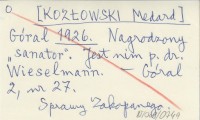 O [KOZŁOWSKI Medard]
Góral 1926. Nagrodzony
„sanator”. Jest nim p. dr.
Wieselmann. — Góral
2, nr 27.
Sprawy Zakopanego.